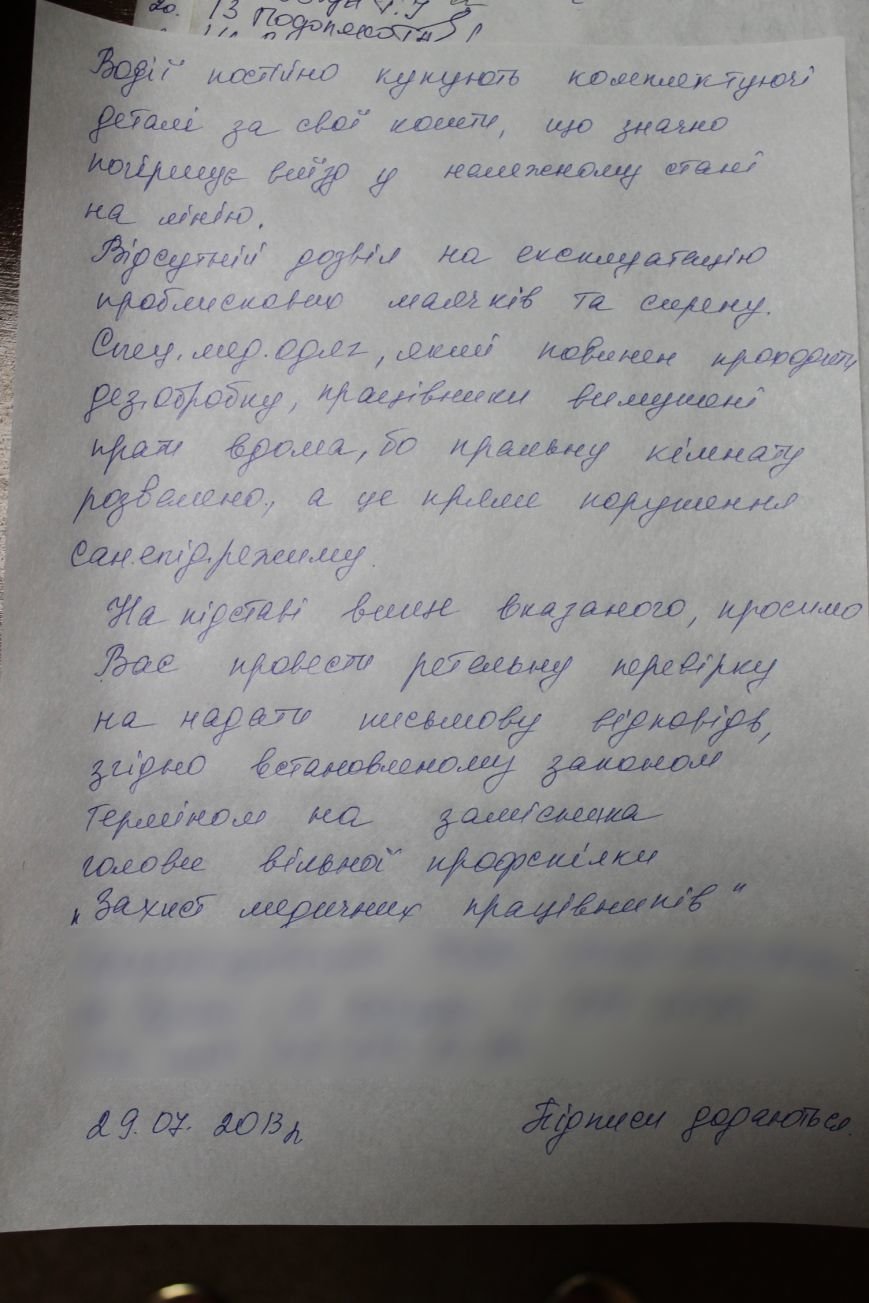 20. 13
Подопякоти
Водії постійно купують комплектуючі
деталі за свої кошти, що значно
погіршує виїзд у належному стані
на лінію.
Відсутній дозвіл на експлуатацію
проблискових маячків та сирену.
Спец. мед. одяг, який повинен проходити
дез. обробку, працівники вимушені
прати вдома, бо пральну кімнату
розвалено, а це пряме порушення
сан.епід.режиму.
На підставі вище вказаного, просимо
Вас провести ретельну перевірку
на надати письмову відповідь,
згідно встановленому законом
терміном на замісника
голови вільної профспілки
„Захист медичних працівників"
29.07.2013р Підписи додаються.